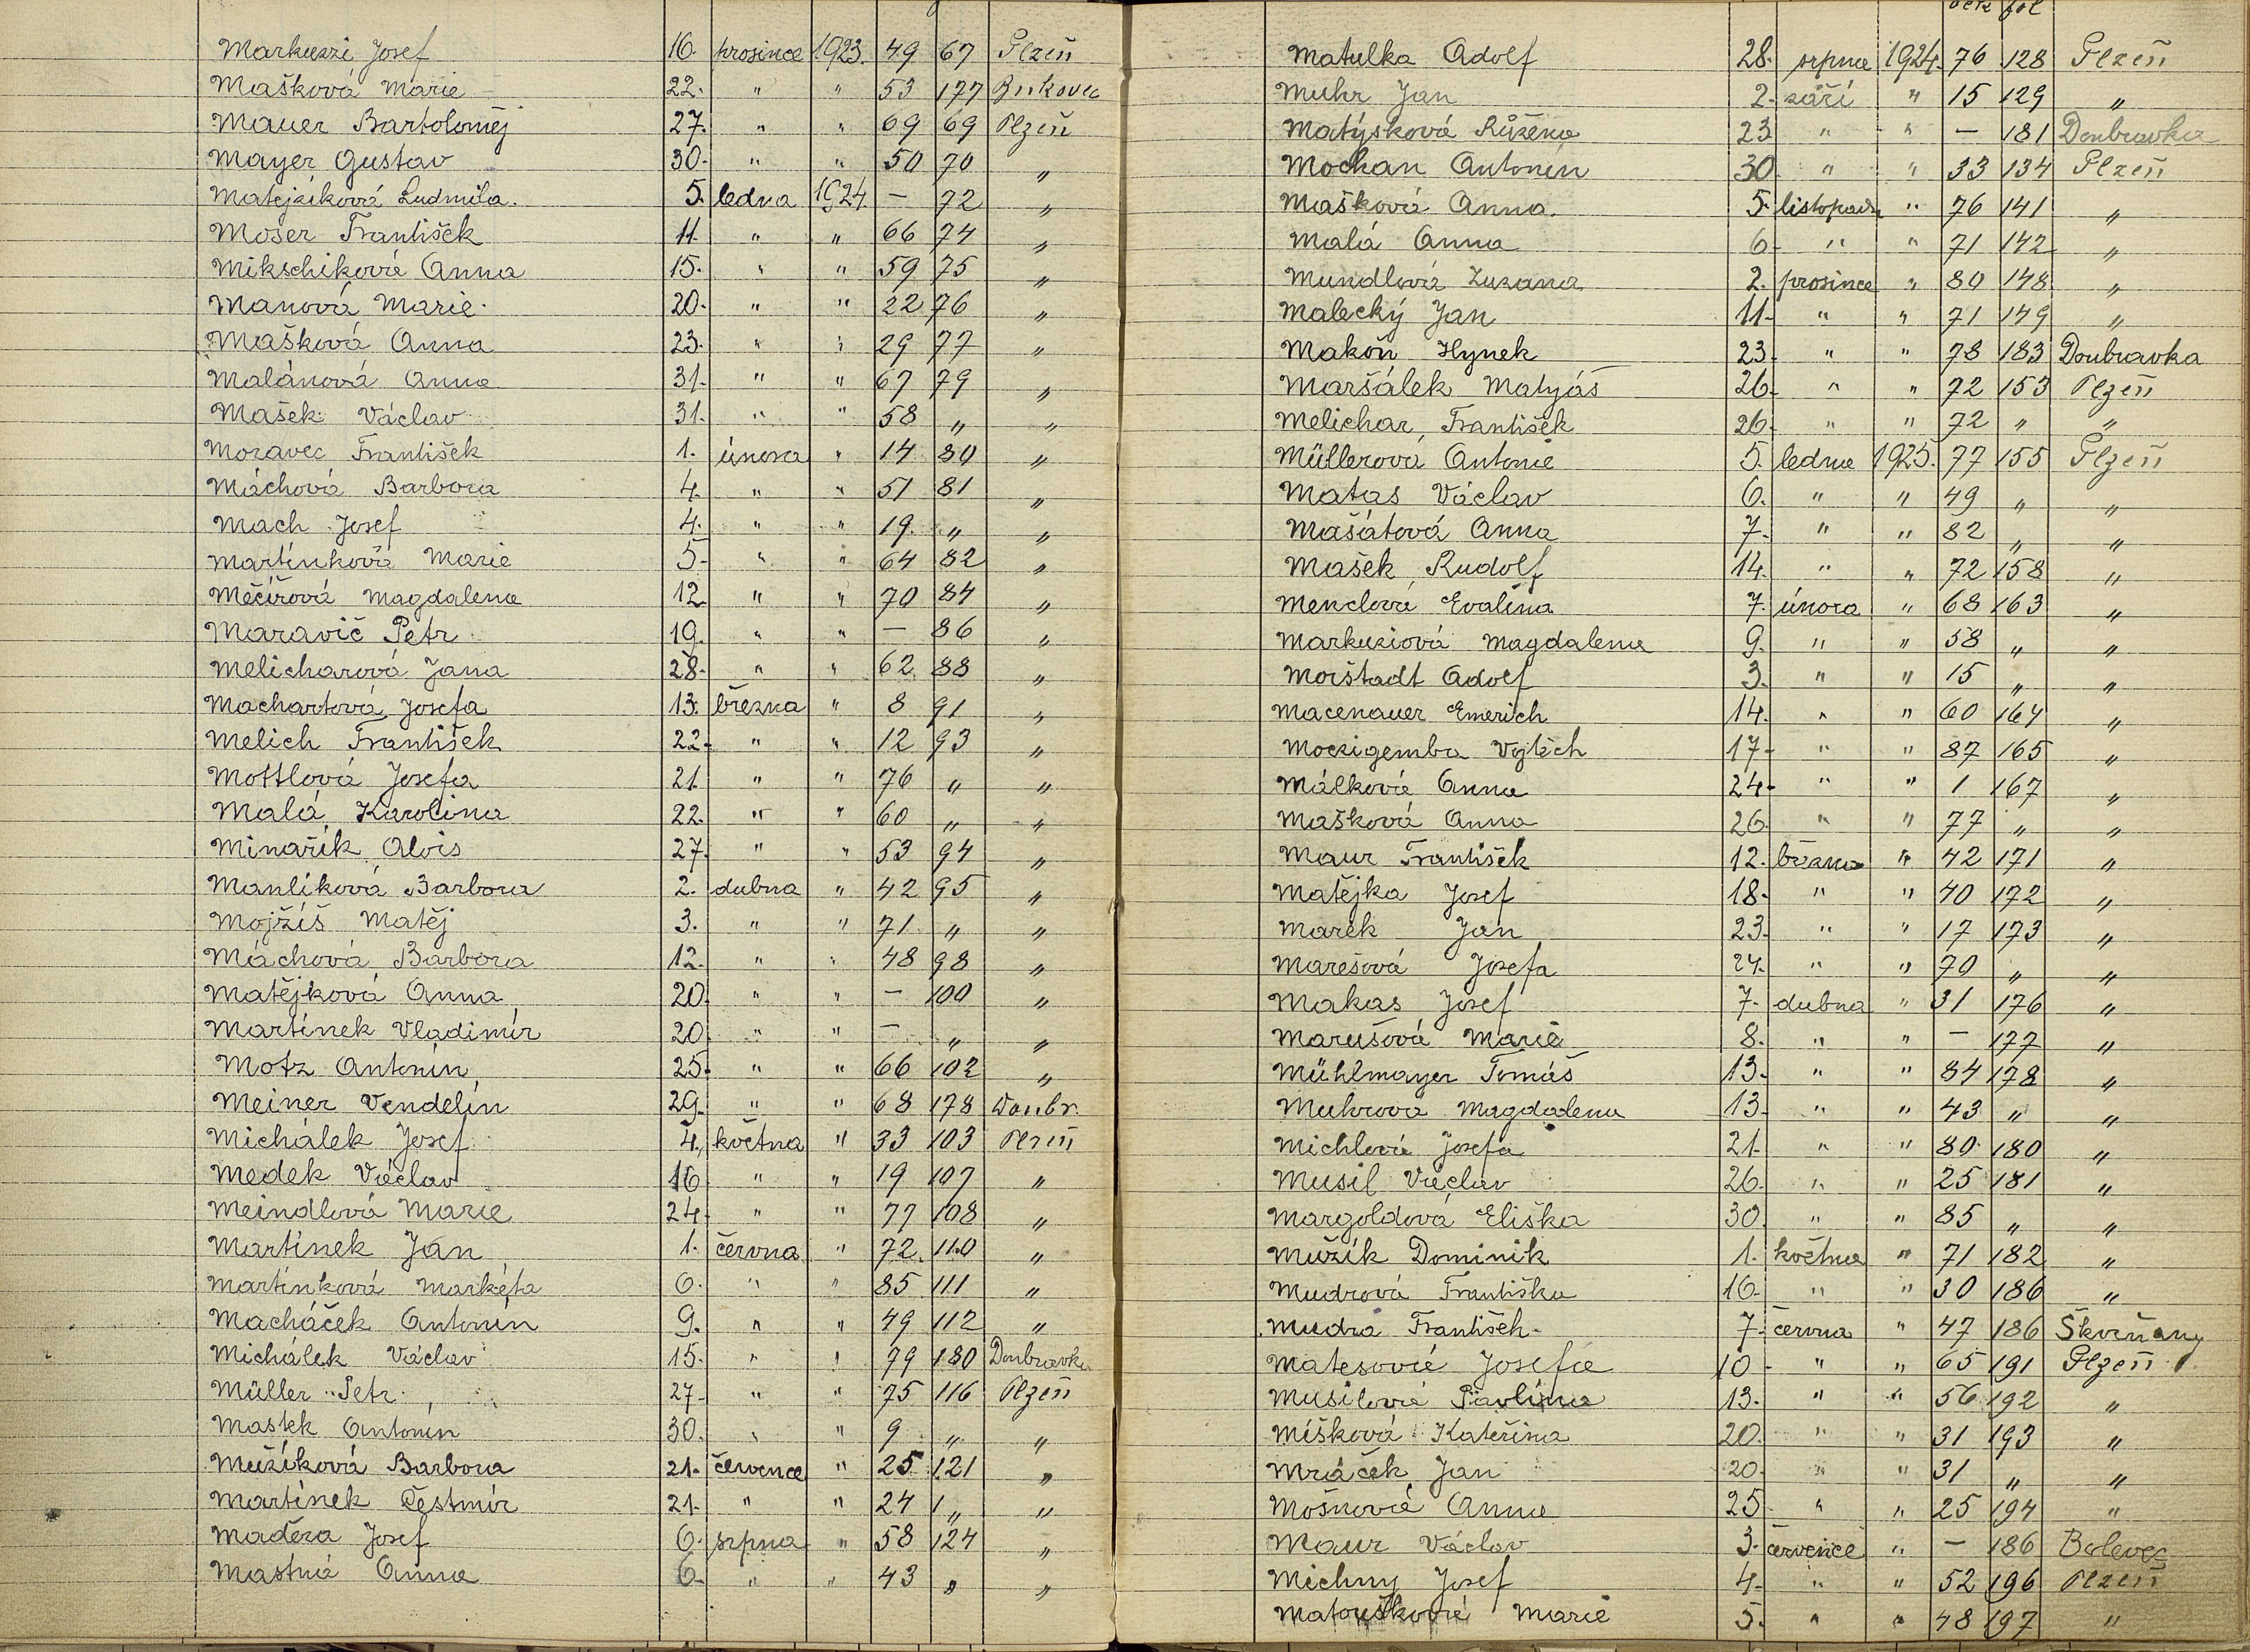 Markuzzi Josef 16. prosince 1923. 49 67 Plzeň
Mašková Marie 22. " " 53 177 Bukovec
Mauer Bartoloměj 27. " " 69 69 Plzeň
Mayer Gustav 30. " " 50 70 "
Matejzíková Ludmila. 5. ledna 1924. — 72 "
Moser František 11. " " 66 74 "
Mikschiková Anna 15. " " 59 75 "
Manová Marie. 20. " " 22 76 "
Mašková Anna 23. " " 29 77 "
Malánová Anna 31. " " 67 79 "
Mašek Václav 31. " " 58 " "
Moravec František 1. února " 14 80 "
Máchová Barbora 4. " " 51 81 "
Mach Josef 4. " " 19. " "
Martínková Marie 5. " " 64 82 "
Měčířová Magdalena 12. " " 70 84 "
Maravič Petr 19. " " — 86 "
Melicharová Jana 28. " " 62 88 "
Machartová Josefa 13. března " 8 91 "
Melich František 22. " " 12 93 "
Mottlová Josefa 21. " " 76 " "
Malá Karolina 22. " " 60 " "
Minařík Alois 27. " " 53 94 "
Manlíková Barbora 2. dubna " 42 95 "
Mojžíš Matěj 3. " " 71 " "
Máchová Barbora 12. " " 48 98 "
Matějková Anna 20. " " — 100 "
Martínek Vladimír 20. " " — " "
Motz Antonín 25. " " 66 102 "
Meiner Vendelín 29. " " 68 178 Doubr.
Michálek Josef 4. května " 33 103 Plzeň
Medek Václav 16 " " 19 107 "
Meindlová Marie 24. " " 77 108 "
Martínek Jan 1. června " 72. 110 "
Martínková Markéta 6. " " 85 111 "
Macháček Antonín 9. " " 49 112 "
Michálek Václav 15. " " 79 180 Doubravka
Müller Petr 27. " " 75 116 Plzeň
Mastek Antonín 30. " " 9 " "
Mužíková Barbora 21. července " 25 121 "
Martínek Čestmír 21. " " 24 " "
Maděra Josef 6. srpna " 58 124 "
Mastná Anna 6. " " 43 " "
fol
Matulka Adolf 28. srpna 1924. 76 128 Plzeň
Muhr Jan 2. září " 15 129 "
Matýsková Růžena 23 " " — 181 Doubravka
Mochan Antonín 30 " " 33 134 Plzeň
Mašková Anna. 5. listopadu " 76 141 "
Malá Anna 6. " " 71 142 "
Mundlová Zuzana 2. prosince " 80 148 "
Malecký Jan 11. " " 71 149 "
Makoň Hynek 23. " " 78 183 Doubravka
Maršálek Matyáš 26. " " 72 153 Plzeň
Melichar František 26. " " 72 " "
Müllerová Antonie 5. ledna 1925. 77 155 Plzeň
Matas Václav 6. " " 49 " "
Mašátová Anna 7. " " 82 " "
Mašek Rudolf 14. " " 72 158 "
Menclová Evalina 7. února " 68 163 "
Markuziová Magdalena 9. " " 58 " "
Morštadt Adolf 3. " " 15 " "
Macenauer Emerich 14. " " 60 164 "
Moczigemba Vojtěch 17. " " 87 165 "
Málková Anna 24. " " 1 167 "
Mašková Anna 26. " " 77 " "
Maur František 12. března " 42 171 "
Matějka Josef 18. " " 40 172 "
Marek Jan 23. " " 17 173 "
Marešová Josefa 24. " " 70 " "
Makas Josef 7. dubna " 31 176 "
Marušová Marie 8. " " — 177 "
Mühlmayer Tomáš 13. " " 84 178 "
Muhrová Magdalena 13. " " 43 " "
Michlová Josefa 21. " " 80 180 "
Musil Václav 26. " " 25 181 "
Margoldová Eliška 30. " " 85 " "
Mužík Dominik 1. května " 71 182 "
Mudrová Františka 16. " " 30 186 "
Mudra František. 7. června " 47 186 Skvrňany
Matesová Josefa 10. " " 65 191 Plzeň
Musilová Pavlína 13. " " 56 192 "
Míšková Kateřina 20. " " 31 193 "
Mráček Jan 20. " " 31 " "
Mošnová Anna 25. " " 25 194 "
Maur Václav 3. července " — 186 Bolevec
Michny Josef 4. " " 52 196 Plzeň
Matoušková Marie 5. " " 48 197 "